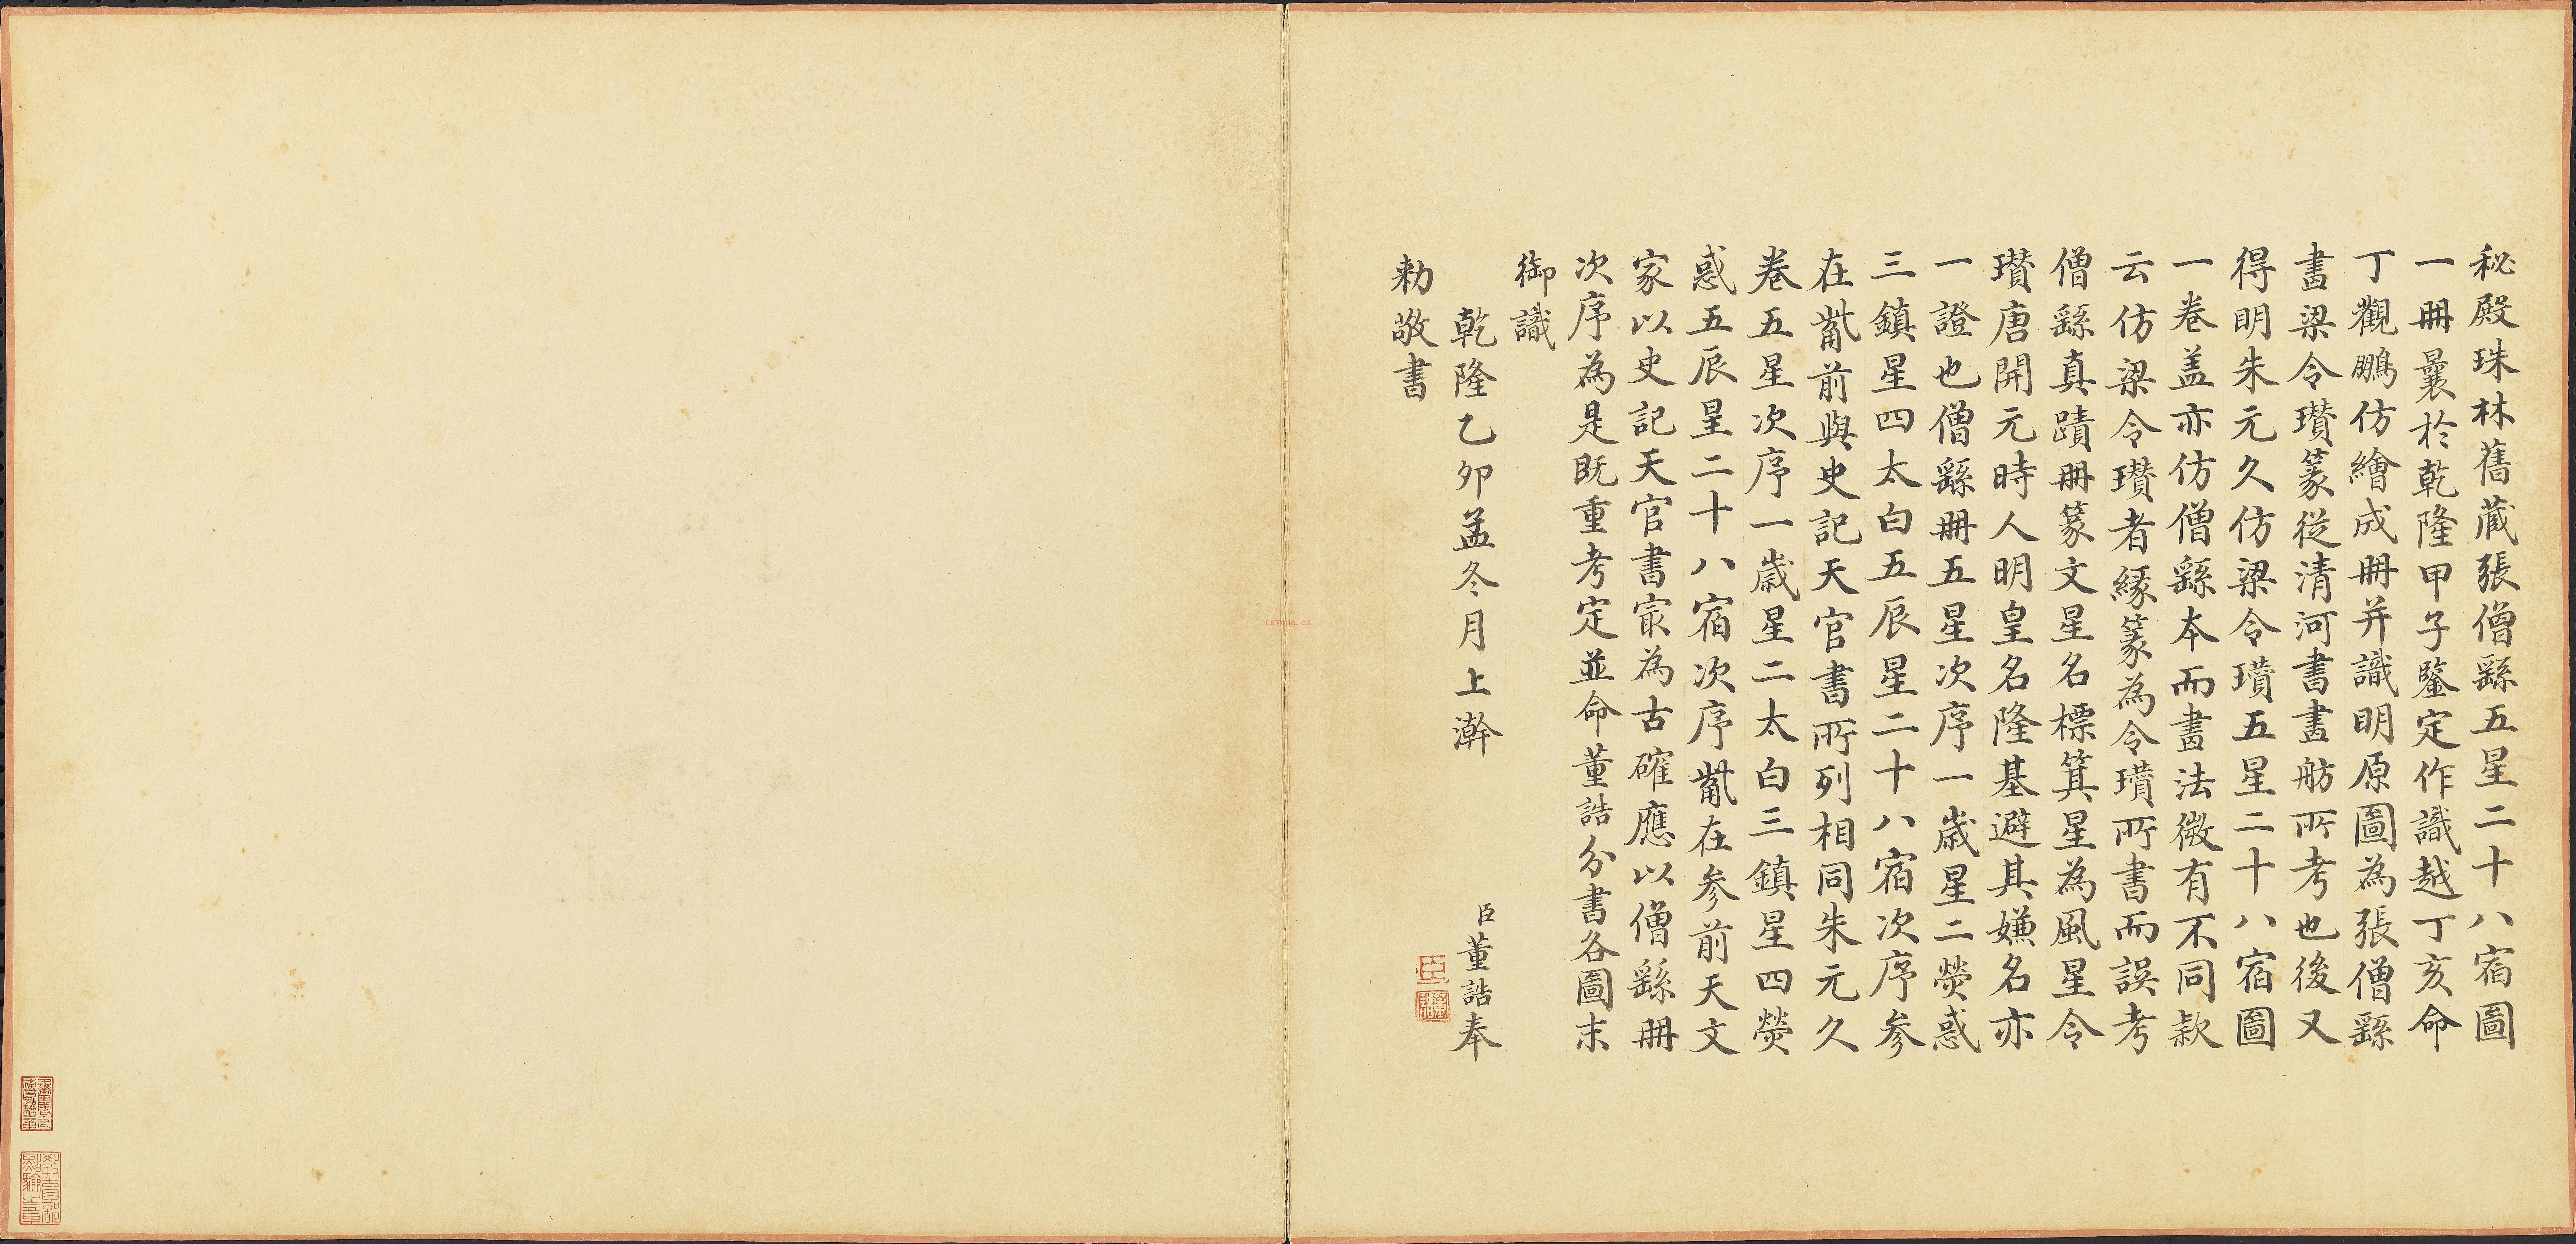 秘殿珠林舊藏張僧繇五星二十八宿圖
一冊曩於乾隆甲子鑒定作識越丁亥命
丁觀鵬仿繪成冊并識明原圖為張僧繇
畫梁令瓚篆從清河書畫舫所考也後又
得明朱元久仿梁令瓚五星二十八宿圖
一卷盖亦仿僧繇本而畫法微有不同款
云仿梁令瓚者緣篆為令瓚所書而誤考
僧繇真蹟冊篆文星名標箕星為風星令
瓚唐開元時人明皇名隆基避其嫌名亦
一證也僧繇冊五星次序一歲星二熒惑
三鎮星四太白五辰星二十八宿次序參
在觜前與史記天官書所列相同朱元久
卷五星次序一歲星二太白三鎮星四熒
惑五辰星二十八宿次序觜在參前天文
家以史記天官書㝡為古確應以僧繇冊
次序為是既重考定並命董誥分書各圖末
御識
乾隆乙夘孟冬月上澣
臣董誥奉
勑敬書
臣
nayona.cn